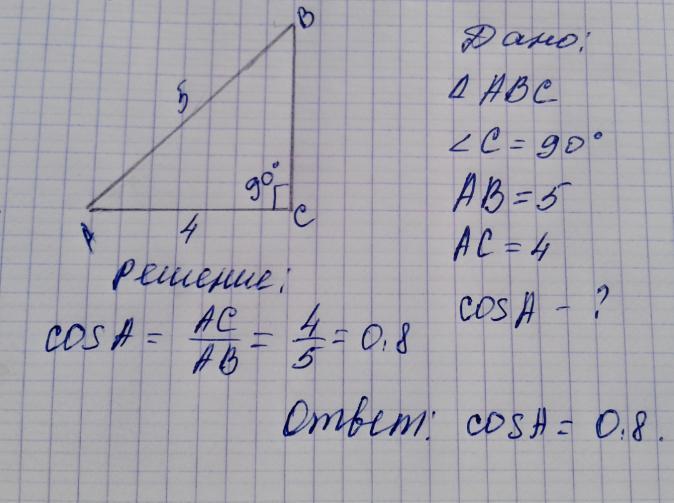 B
5
90°
A
4
C
Дано:
Δ ABC
∠C = 90°
AB = 5
AC = 4
cosA - ?
Решение:
cosA = AC/AB = 4/5 = 0.8
Ответ: cosA = 0.8.